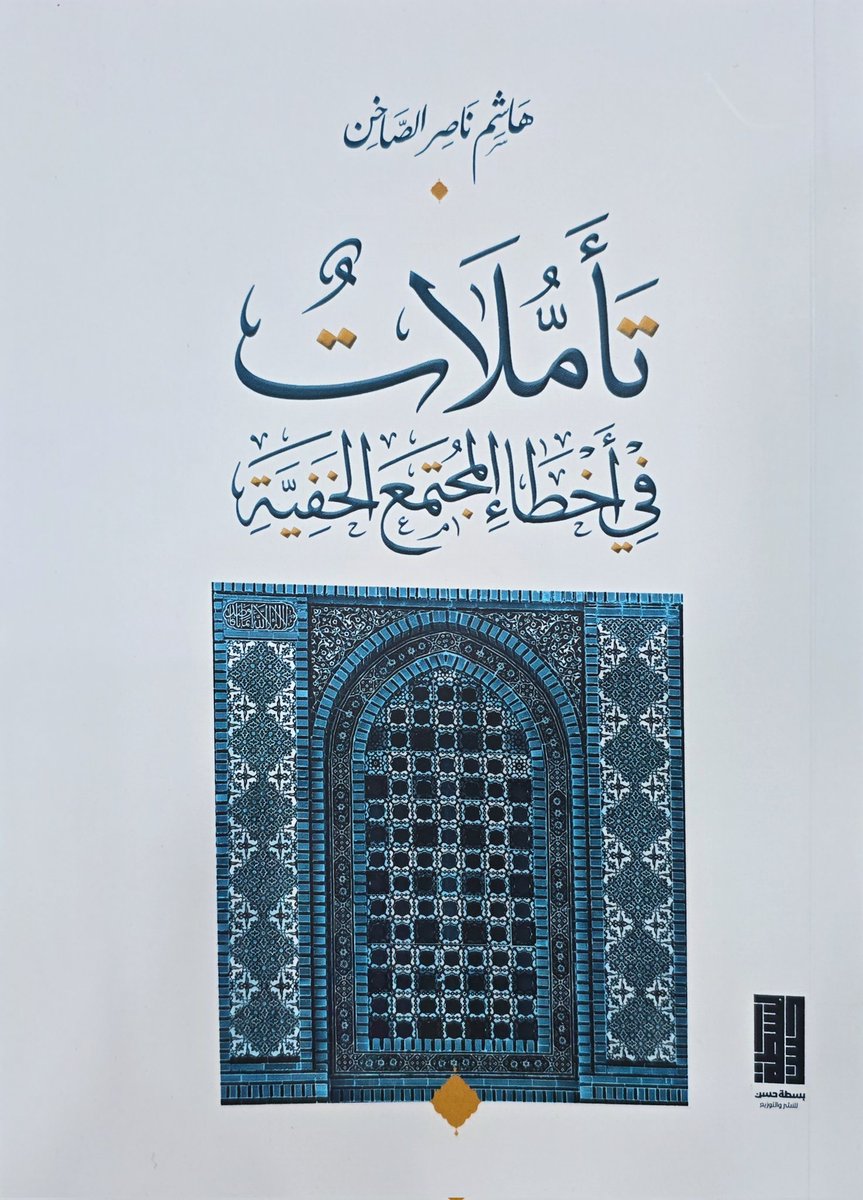 هَاشِم نَاصِر الصَّاخِن
تَأَمُّلَاتٌ
فِي أَخْطَاءِ المُجْتَمَعِ الخَفِيَّةِ
بسطة حسن
للنشر والتوزيع